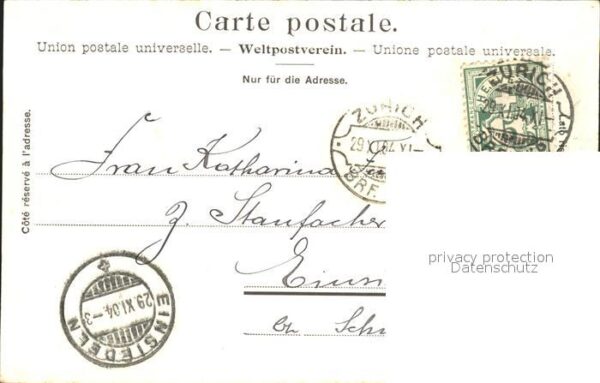 Carte postale.
Union postale universelle. — Weltpostverein. — Unione postale universale.
Nur für die Adresse.
Côté réservé à l'adresse.
ZÜRICH
29.XI.04.VI
BRF.
ZÜRICH
29.XI.04.VI
Frau Katharina
z. Staufacher
Ein
Ct. Sch
EINSIEDELN
29.XI.04-3
privacy protection
Datenschutz